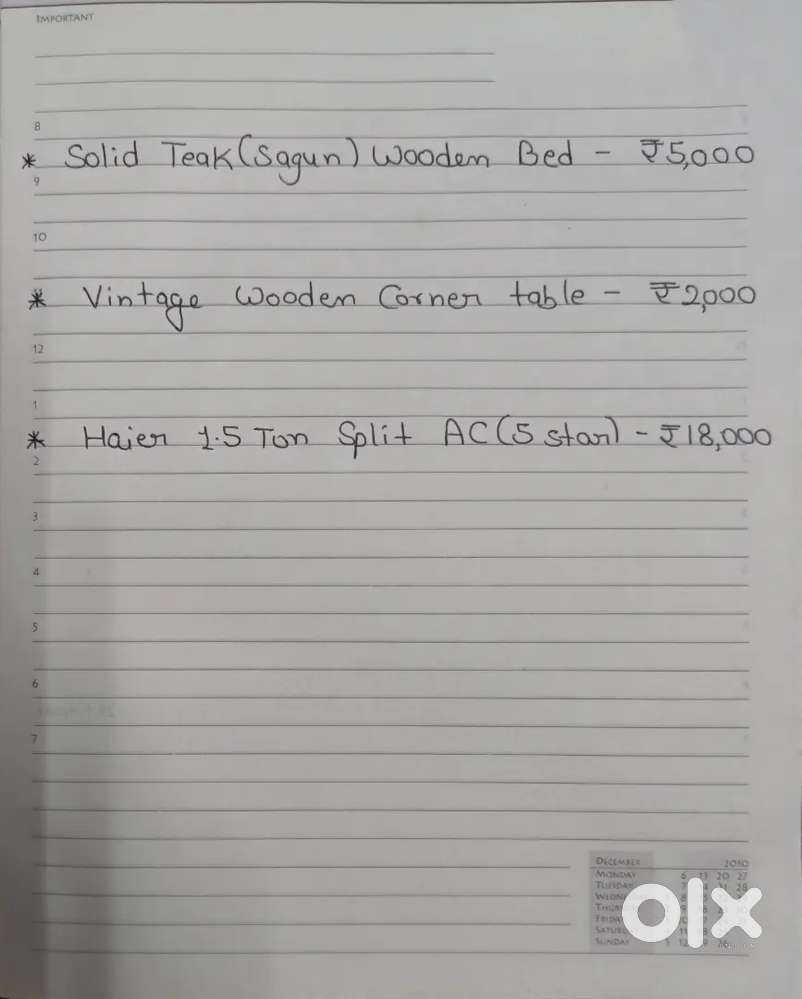 IMPORTANT
8
* Solid Teak(Sagun) Wooden Bed - ₹5,000
9
10
* Vintage Wooden Corner table - ₹2,000
12
1
* Haier 1.5 Ton Split AC(5 star) - ₹18,000
2
3
4
5
6
7
DECEMBER 2010
MONDAY 6 13 20 27
TUESDAY 7 28
SUNDAY 12 26
olx